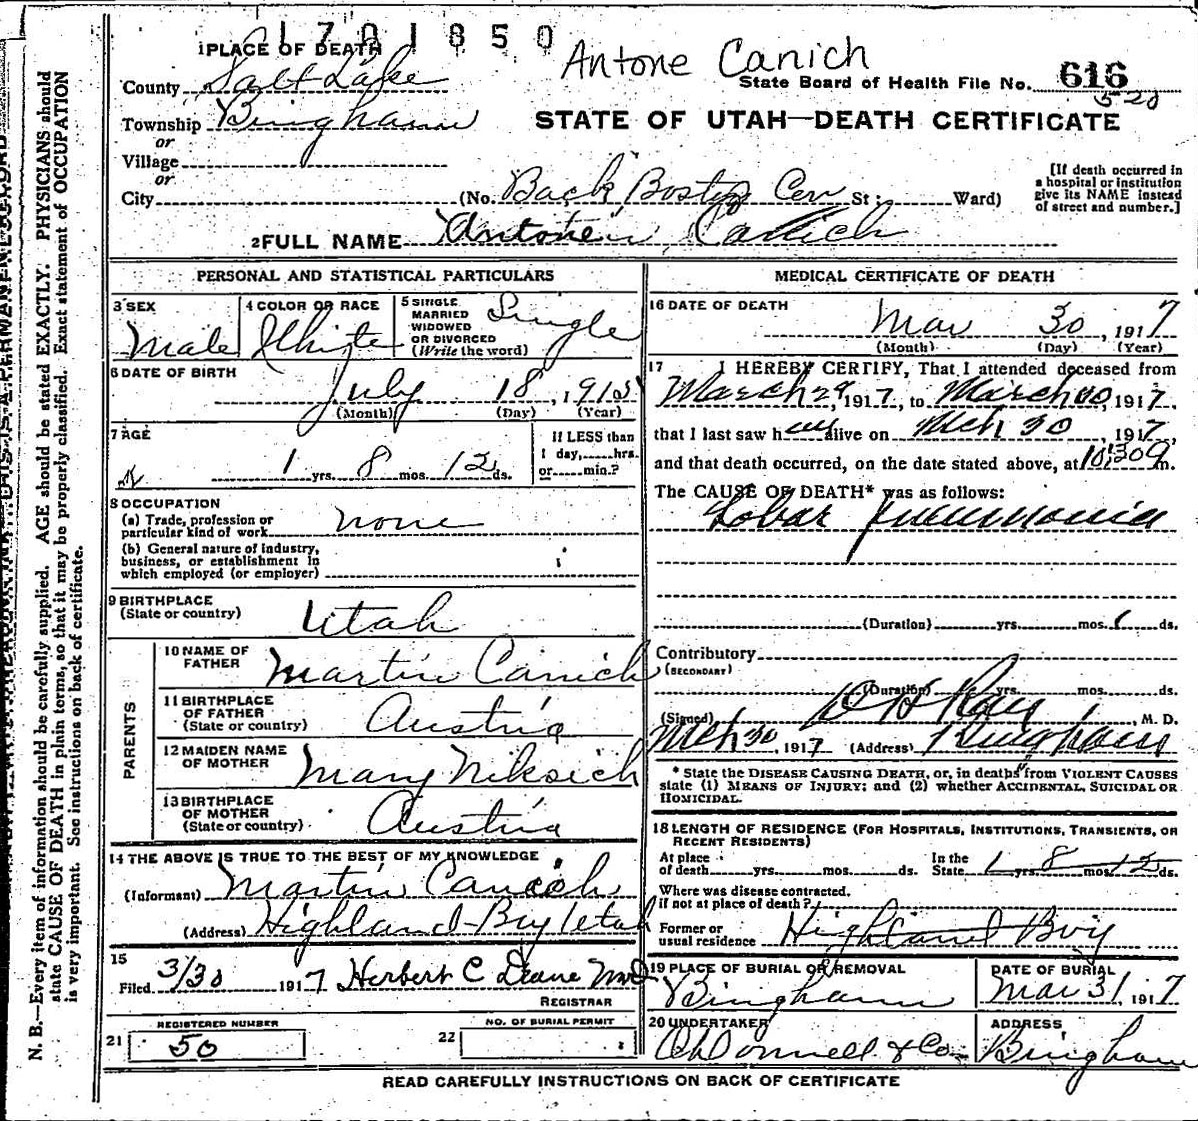 1701850
Antone Canich
1 PLACE OF DEATH
County Salt Lake
State Board of Health File No. 616
520
Township Bingham
STATE OF UTAH—DEATH CERTIFICATE
or
Village
or
City (No. Back Boston Con St; Ward)
[If death occurred in a hospital or institution give its NAME instead of street and number.]
2 FULL NAME Canich
PERSONAL AND STATISTICAL PARTICULARS
3 SEX
Male
4 COLOR OR RACE
White
5 SINGLE
MARRIED
WIDOWED
OR DIVORCED
(Write the word)
Single
6 DATE OF BIRTH
July 18, 1915
(Month) (Day) (Year)
7 AGE
1 yrs. 8 mos. 12 ds.
If LESS than
1 day, hrs.
or min.?
8 OCCUPATION
(a) Trade, profession or
particular kind of work none
(b) General nature of industry,
business, or establishment in
which employed (or employer)
9 BIRTHPLACE
(State or country) Utah
PARENTS
10 NAME OF
FATHER Martin Canich
11 BIRTHPLACE
OF FATHER
(State or country) Austria
12 MAIDEN NAME
OF MOTHER Mary Niksich
13 BIRTHPLACE
OF MOTHER
(State or country) Austria
14 THE ABOVE IS TRUE TO THE BEST OF MY KNOWLEDGE
(Informant) Martin Canich
(Address) Highland Boy Utah
15
Filed 3/30 1917 Herbert C Deane MD
REGISTRAR
21 REGISTERED NUMBER
50
22 NO. OF BURIAL PERMIT
MEDICAL CERTIFICATE OF DEATH
16 DATE OF DEATH
Mar 30, 1917
(Month) (Day) (Year)
17 I HEREBY CERTIFY, That I attended deceased from
March 29, 1917, to March 30, 1917,
that I last saw h alive on Mch 30, 1917,
and that death occurred, on the date stated above, at 10:30 m.
The CAUSE OF DEATH* was as follows:
Lobar Pneumonia
(Duration) yrs. mos. 1 ds.
Contributory
(SECONDARY)
(Duration) yrs. mos. ds.
(Signed) Ray, M. D.
Mch 30, 1917 (Address) Bingham
* State the DISEASE CAUSING DEATH, or, in deaths from VIOLENT CAUSES
state (1) MEANS OF INJURY; and (2) whether ACCIDENTAL, SUICIDAL OR
HOMICIDAL.
18 LENGTH OF RESIDENCE (FOR HOSPITALS, INSTITUTIONS, TRANSIENTS, OR
RECENT RESIDENTS)
At place
of death yrs. mos. ds.
In the
State 1 yrs. 8 mos. 12 ds.
Where was disease contracted.
if not at place of death?
Former or
usual residence Highland Boy
19 PLACE OF BURIAL OR REMOVAL
Bingham
DATE OF BURIAL
Mar 31, 1917
20 UNDERTAKER
O'Donnell & Co
ADDRESS
Bingham
READ CAREFULLY INSTRUCTIONS ON BACK OF CERTIFICATE
N. B.—Every item of information should be carefully supplied. AGE should be stated EXACTLY. PHYSICIANS should
state CAUSE OF DEATH in plain terms, so that it may be properly classified. Exact statement of OCCUPATION
is very important. See instructions on back of certificate.